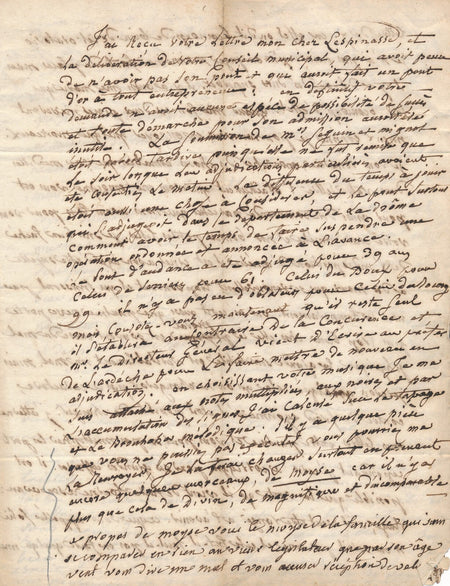 J'ai Reçu votre lettre mon cher Lespinasse, et
la déliberation de votre Conseil municipal, qui avoit peur
de n'avoir pas son pont et que auroit fait un pont
d'or à tout entrepreneur; en diferant votre
demande n'avoit aucune espece de possibilité de succès
et toute demarche pour son admission auroit été
inutile. La soumission de Mrs Seguin et mignot
etoit tardive puisqu'elle ne fut remise que
le soir lorsque les adjudications avoient
été le matin. La différence du temps à jouir
etoit aussi une chose à Considerer, et le pont surtout
qui s'adjugeoit dans le departement de La Drôme
Comment avoir le temps de faire suspendre une
opération ordonnée et annoncée à L'avance.
Le pont d'andance a été adjugé pour 39 ans
Celui de Serrieres pour 61. Celui du Doux pour
99. il n'y a pas eu d'obstacle pour Celui du bourg
mais Consolés-vous maintenant qu'il reste seul
il s'etablira de La Concurrence et
Mr Le Directeur Général vient d'Ecrire au préfet
de L'ardèche pour Le faire mettre de nouveau en
adjudication. en choisissant votre musique Je me
suis attaché aux notes multipliées, aux noires et par
l'accumulation des
et La mélodique. il y a quelque pièce
que vous ne puissiez pas vous pourriez me
La Renvoyer, Je La ferai Changer surtout en prenant
encore quelques morceaux de Moyse car il n'y a
plus que cela de divin, de magnifique et d'incomparable
à propos de moyse vous le moyse de la famille qui sans
se comparer en rien au vieux législateur que par son âge
vient vous dire une mot et vous accuser réception de vos